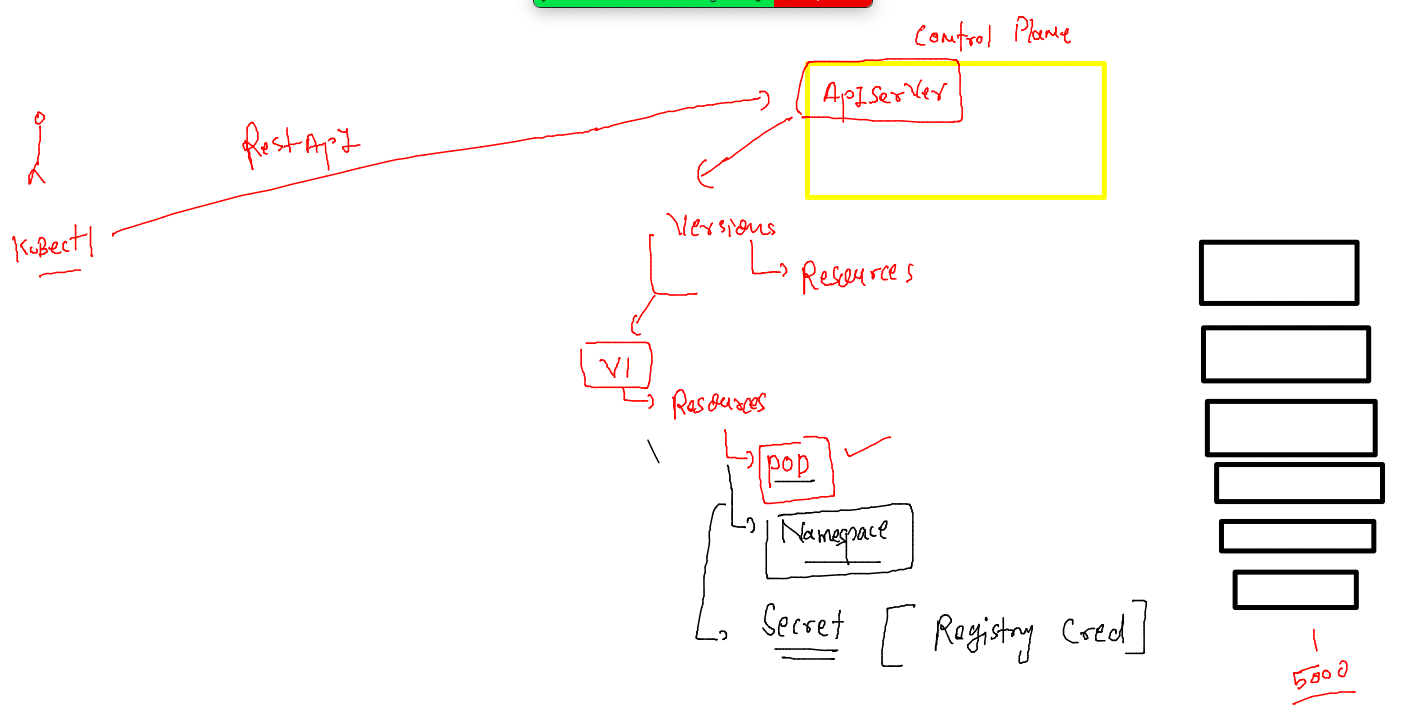 Control Plane
ApIServer
RestApI
KuBectl
Versions
Resources
V1
Resources
POD
Namespace
Secret [ Registry Cred ]
1
5000